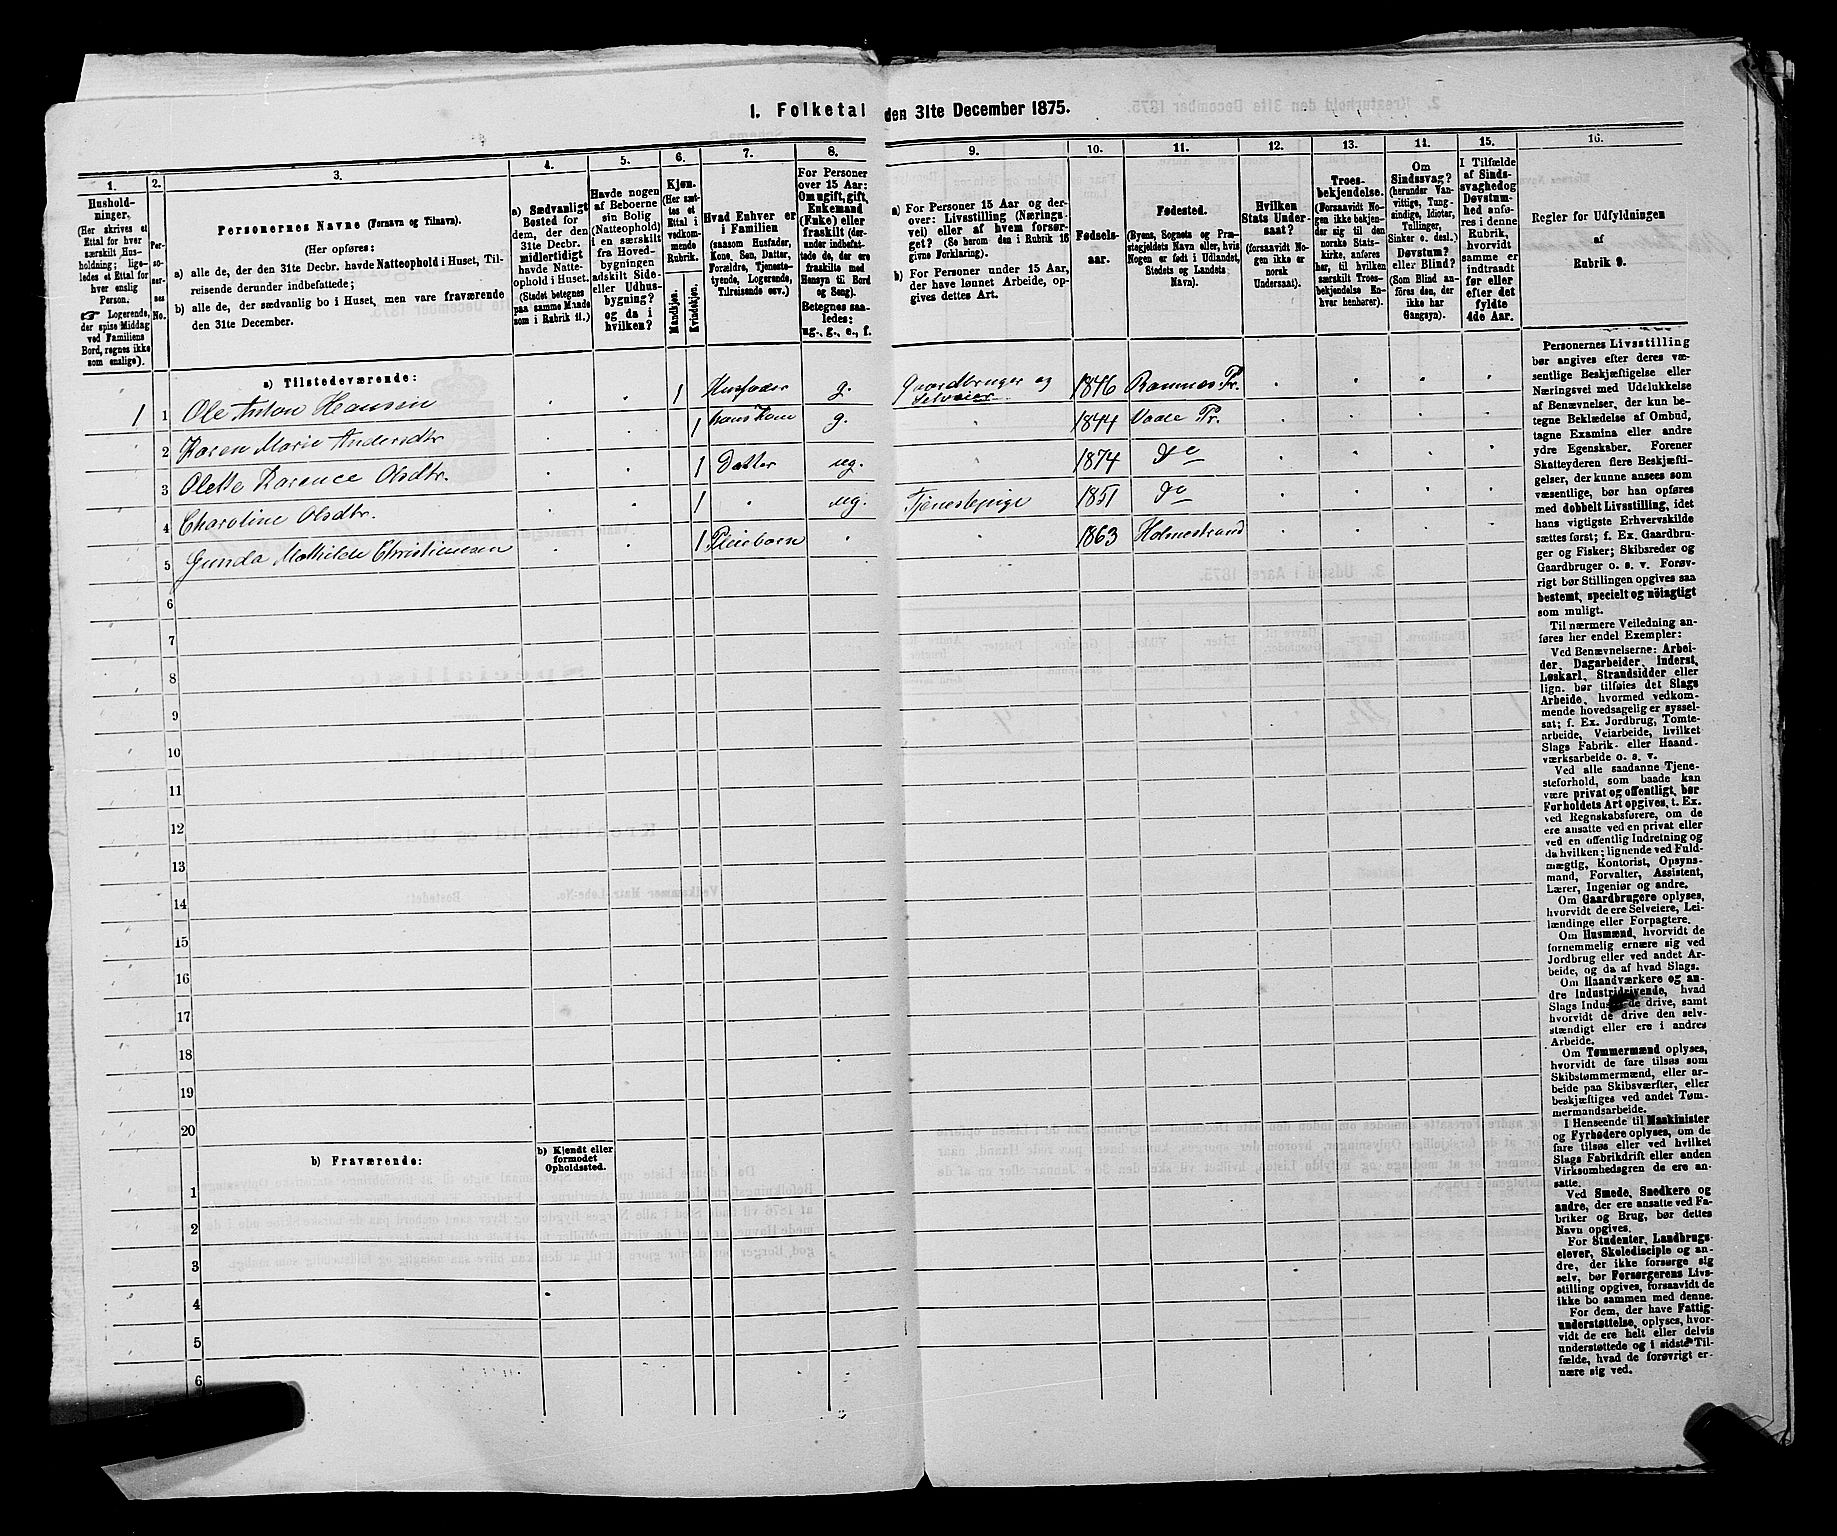 1. Folketal den 31te December 1875.
1.
Hushold-
ninger.
(Her skrives et
Ettal for hver
særskilt Hus-
holdning; lige-
ledes et Ettal for
hver enslig
Person.
Logerende,
der spise Middag
ved Familiens
Bord, regnes ikke
som enslige).
2.
Per-
so-
ner-
nes
No.
3.
Personernes Navne (Fornavn og Tilnavn).
(Her opføres:
a) alle de, der den 31te Decbr. havde Natteophold i Huset, Til-
reisende derunder indbefattede;
b) alle de, der sædvanlig bo i Huset, men vare fraværende
den 31te December.
4.
a) Sædvanligt
Bosted for
dem, der den
31te Decbr.
midlertidigt
havde Natte-
ophold i Huset.
(Stedet betegnes
paa samme Maade
som i Rubrik 11.)
5.
Havde nogen
af Beboerne
sin Bolig
(Natteophold)
i en særskilt
fra Hoved-
bygningen
adskilt Side-
eller Udhus-
bygning?
og da i
hvilken?
6.
Kjøn.
(Her sæt-
tes et
Ettal i
vedkom-
mende
Rubrik.
Mandkjøn.
Kvindekjøn.
7.
Hvad Enhver er
i Familien
(saasom Husfader,
Kone, Søn, Datter,
Forældre, Tjeneste-
tyende, Logerende,
Tilreisende osv.)
8.
For Personer
over 15 Aar:
Om ugift, gift,
Enkemand
(Enke) eller
fraskilt (der-
under indbefat-
tede de, der ere
fraskilte med
Hensyn til Bord
og Seng).
Betegnes saa-
ledes:
ug., g., e., f.
9.
a) For Personer 15 Aar og der-
over: Livsstilling (Nærings-
vei) eller af hvem forsør-
get? (Se herom den i Rubrik 16
givne Forklaring).
b) For Personer under 15 Aar,
der have lønnet Arbeide, op-
gives dettes Art.
10.
Fødsels-
aar.
11.
Fødested.
(Byens, Sognets og Præ-
stegjeldets Navn eller, hvis
Nogen er født i Udlandet,
Stedets og Landets
Navn).
12.
Hvilken
Stats Under-
saat?
(forsaavidt No-
gen ikke er
norsk
Undersaat).
13.
Troes-
bekjendelse.
(Forsaavidt No-
gen ikke bekjen-
der sig til den
norske Stats-
kirke, anføres
her, til hvilken
særskilt Troes-
bekjendelse En-
hver henhører).
14.
Om
Sindssvag?
(herunder Van-
vittige, Tung-
sindige, Idioter,
Tullinger,
Sinker o. desl.)
Døvstum?
eller Blind?
(Som Blind an-
føres den, der
ikke har
Gangsyn).
15.
I Tilfælde
af Sinds-
svaghed og
Døvstum-
hed anfø-
res i denne
Rubrik,
hvorvidt
samme er
indtraadt
før eller
efter det
fyldte
4de Aar.
16.
Regler for Udfyldningen
af
Rubrik 9.
a) Tilstedeværende:
1 1 Ole Anton Hansen 1 Husfader g. Gaardbruger og Selveier 1846 Ramnæs Pr.
2 Karen Marie Andersdtr. 1 hans Kone g. 1844 Vaale Pr.
3 Olette Karence Olsdtr. 1 Datter ug. 1874 do
4 Charoline Olsdtr. 1 ug. Tjenestepige 1851 do
5 Gunda Mathilde Christiansen 1 Pleiebarn 1863 Holmestrand
6
7
8
9
10
11
12
13
14
15
16
17
18
19
20
b) Fraværende:
b) Kjendt eller
formodet
Opholdssted.
1
2
3
4
5
6
Personernes Livsstilling
bør angives efter deres væ-
sentlige Beskjæftigelse eller
Næringsvei med Udelukkelse
af Benævnelser, der kun be-
tegne Beklædelse af Ombud,
tagne Examina eller andre
ydre Egenskaber. Forener
Skatteyderen flere Beskjæfti-
gelser, der kunne ansees som
væsentlige, bør han opføres
med dobbelt Livsstilling, idet
hans vigtigste Erhvervskilde
sættes først; f. Ex. Gaardbru-
ger og Fisker; Skibsreder og
Gaardbruger o. s. v. Forøv-
rigt bør Stillingen opgives saa
bestemt, specielt og nøiagtigt
som muligt.
Til nærmere Veiledning an-
føres her endel Exempler:
Ved Benævnelserne: Arbei-
der, Dagarbeider, Inderst,
Løskarl, Strandsidder eller
lign. bør tilføies det Slags
Arbeide, hvormed vedkom-
mende hovedsagelig er syssel-
sat; f. Ex. Jordbrug, Tomte-
arbeide, Veiarbeide, hvilket
Slags Fabrik- eller Haand-
værksarbeide o. s. v.
Ved alle saadanne Tjene-
steforhold, som baade kan
være privat og offentligt, bør
Forholdets Art opgives, t. Ex.
ved Regnskabsførere, om de
ere ansatte ved en privat eller
ved en offentlig Indretning og
da hvilken; lignende ved Fuld-
mægtig, Kontorist, Opsyns-
mand, Forvalter, Assistent,
Lærer, Ingeniør og andre.
Om Gaardbrugere oplyses,
hvorvidt de ere Selveiere, Lei-
lændinge eller Forpagtere.
Om Husmænd, hvorvidt de
fornemmelig ernære sig ved
Jordbrug eller ved andet Ar-
beide, og da af hvad Slags.
Om Haandværkere og an-
dre Industridrivende, hvad
Slags Industri de drive, samt
hvorvidt de drive den selv-
stændigt eller ere i andres
Arbeide.
Om Tømmermænd oplyses,
hvorvidt de fare tilsøs som
Skibstømmermænd, eller ar-
beide paa Skibsværfter, eller
beskjæftiges ved andet Tøm-
mermandsarbeide.
I Henseende til Maskinister
og Fyrbødere oplyses, om de
fare tilsøs eller ved hvilket
Slags Fabrikdrift eller anden
Virksomhedsgren de ere an-
satte.
Ved Smede, Snedkere og
andre, der ere ansatte ved Fa-
briker og Brug, bør dettes
Navn opgives.
For Studenter, Landbrugs-
elever, Skoledisciple og an-
dre, der ikke forsørge sig
selv, bør Forsørgerens Livs-
stilling opgives, forsaavidt de
ikke bo sammen med denne.
For dem, der have Fattig-
understøttelse, oplyses, hvor-
vidt de ere helt eller delvis
understøttede og i sidste Til-
fælde, hvad de forøvrigt er-
nære sig ved.